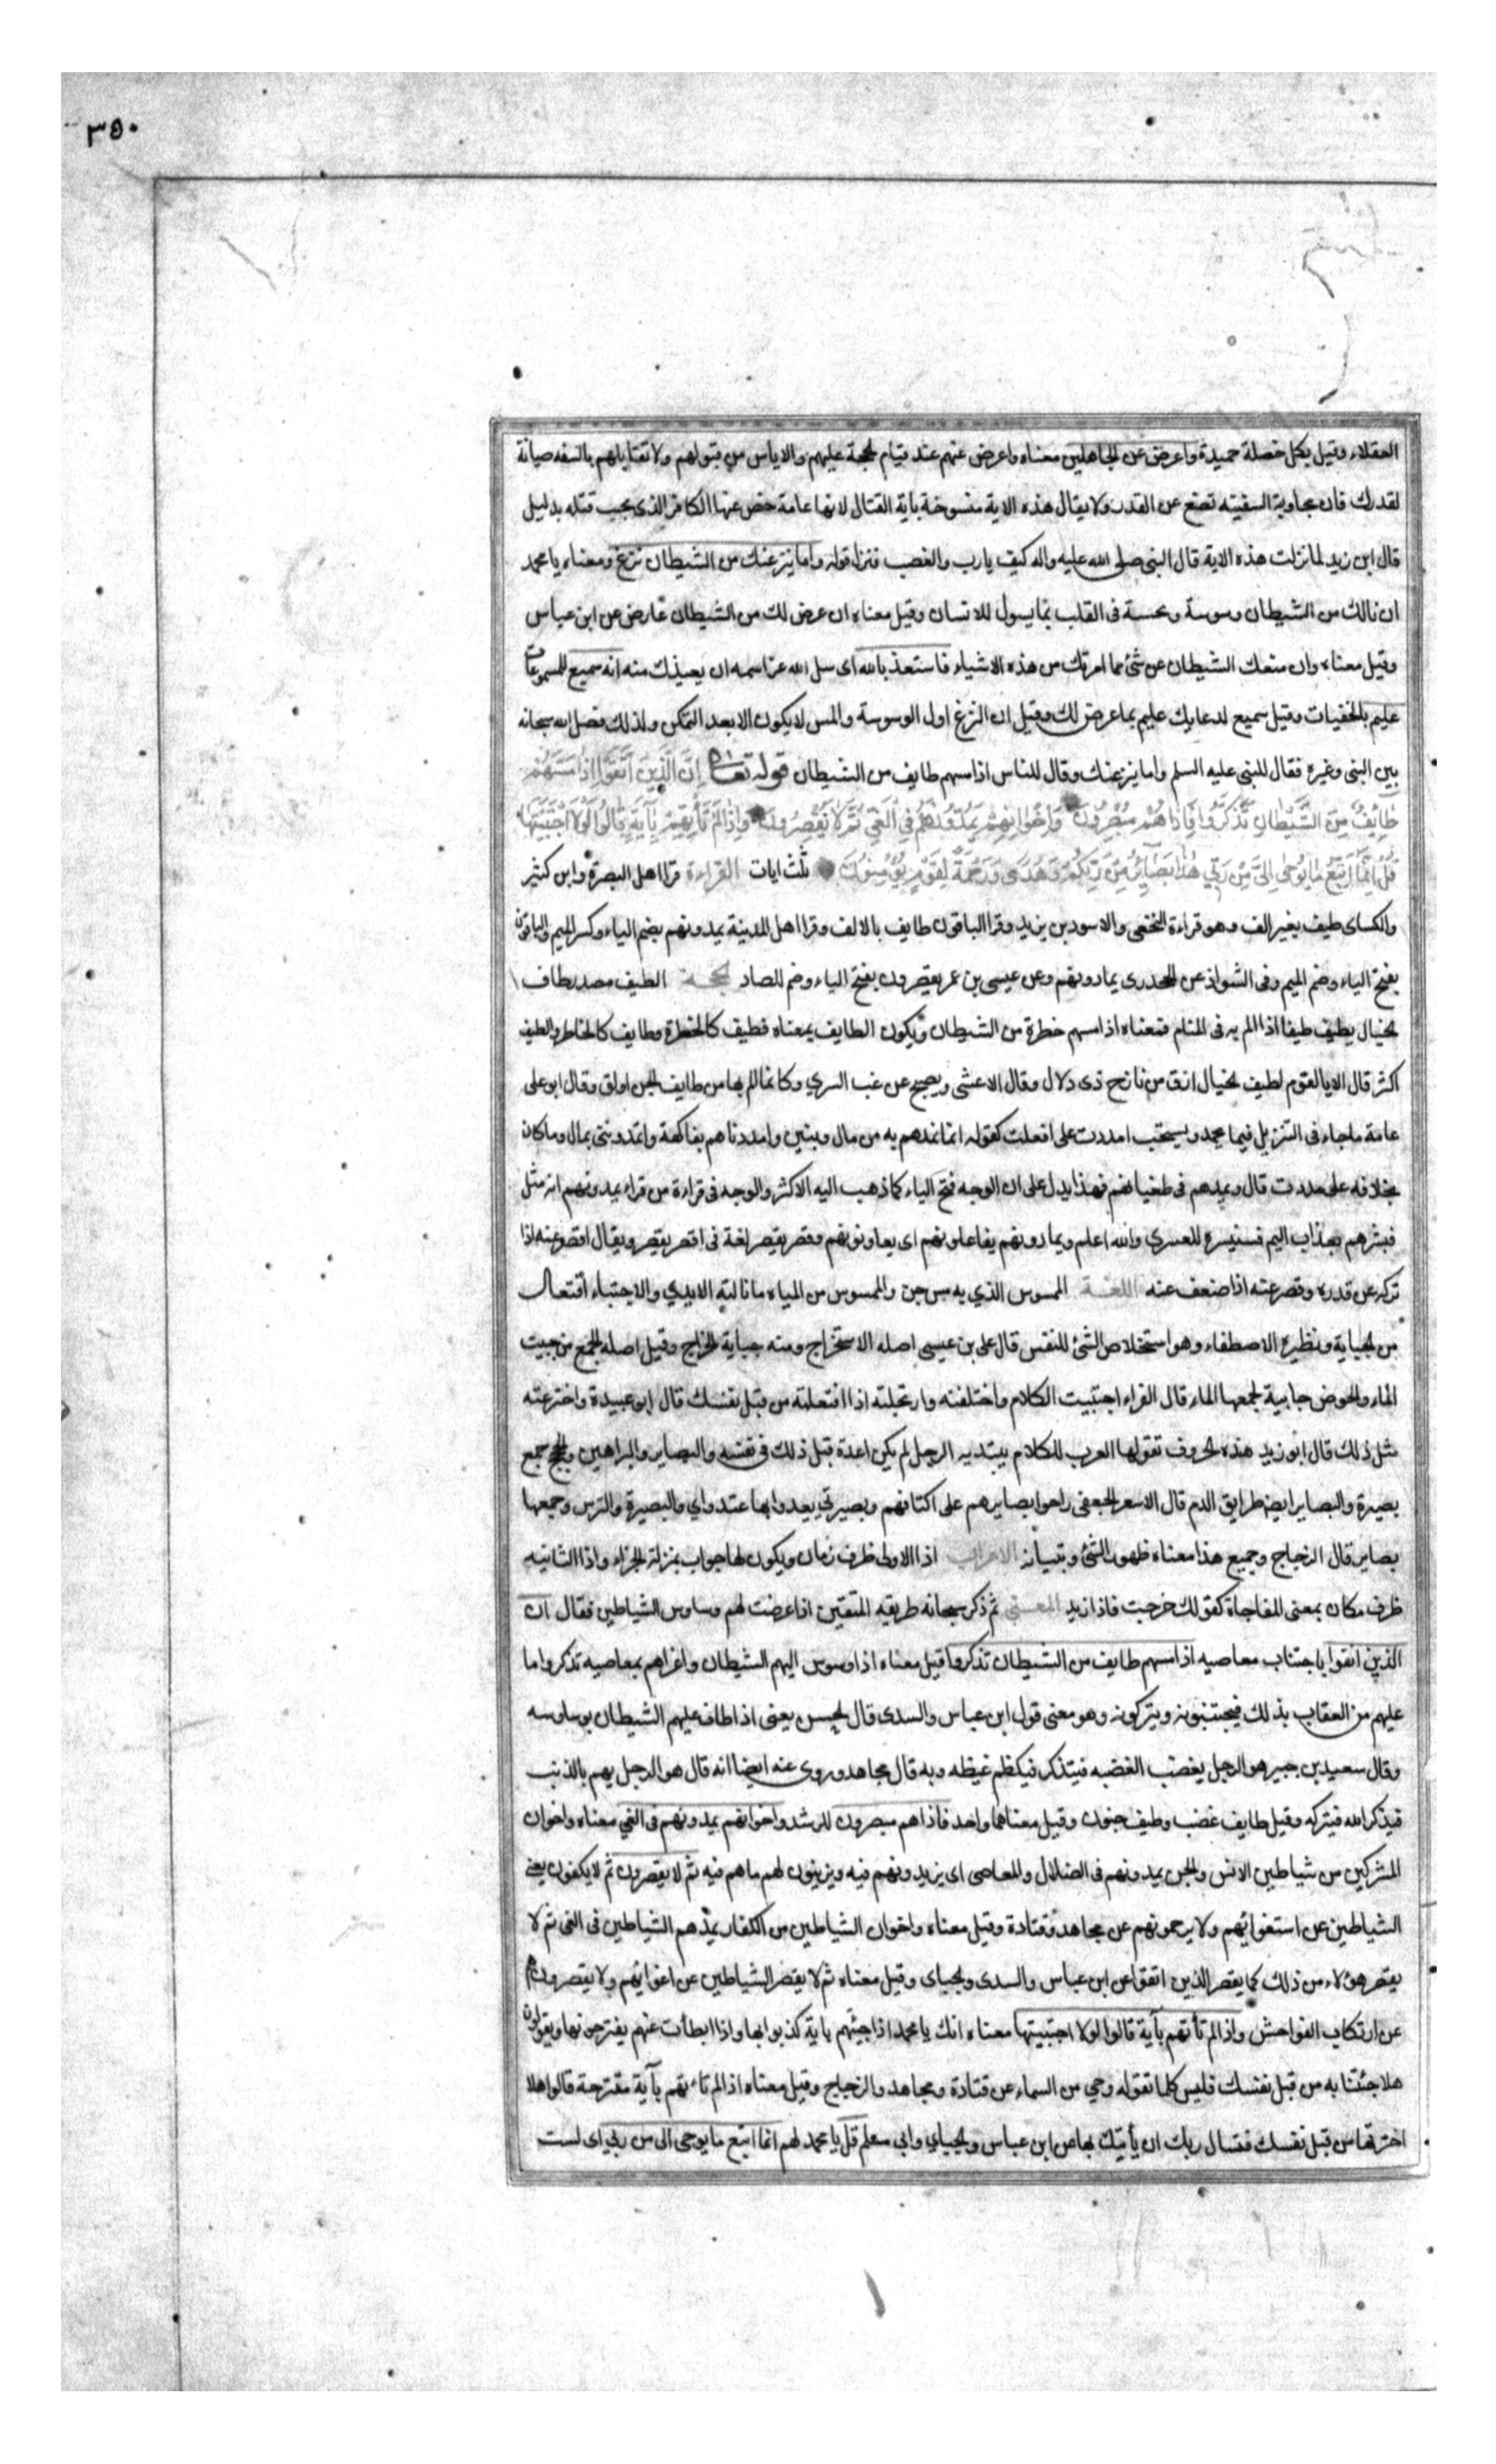 ٣٥٠
العقلاء وقيل بكل خصلة حميدة واعرض عن الجاهلين معناه واعرض عنهم عند قيام الحجة عليهم والاياس من قبولهم ولا تقابلهم بالسفه صيانة
لقدرك فان مجاوبة السفيه تضع عن القدر ولا يقال هذه الاية منسوخة باية القتال لانها عامة خص عنها الكافر الذى يجب قتله بدليل
قال ابن زيد لما نزلت هذه الاية قال النبى صلى الله عليه واله كيف يا رب والغضب فنزل قوله واما ينزغنك من الشيطان نزغ ومعناه يا محمد
ان نالك من الشيطان وسوسة ونخسة فى القلب بما يسول للانسان وقيل معناه ان عرض لك من الشيطان عارض عن ابن عباس
وقيل معناه وان منعك الشيطان عن شئ مما امرتك من هذه الاشياء فاستعذ بالله اى سل الله عز اسمه ان يعيذك منه انه سميع للمسموعات
عليم بالخفيات وقيل سميع لدعايك عليم بما عرض لك وقيل ان النزغ اول الوسوسة والمس لا يكون الا بعد التمكن ولذلك فصل الله سبحانه
بين النبى وغيره فقال للنبى عليه السلم واما ينزغنك وقال للناس اذا مسهم طايف من الشيطان قوله تعالى إِنَّ الَّذِينَ اتَّقَوْا إِذَا مَسَّهُمْ
طَائِفٌ مِنَ الشَّيْطَانِ تَذَكَّرُوا فَإِذَا هُمْ مُبْصِرُونَ وَإِخْوَانُهُمْ يَمُدُّونَهُمْ فِي الْغَيِّ ثُمَّ لَا يُقْصِرُونَ وَإِذَا لَمْ تَأْتِهِمْ بِآيَةٍ قَالُوا لَوْلَا اجْتَبَيْتَهَا
قُلْ إِنَّمَا أَتَّبِعُ مَا يُوحَى إِلَيَّ مِنْ رَبِّي هَذَا بَصَائِرُ مِنْ رَبِّكُمْ وَهُدًى وَرَحْمَةٌ لِقَوْمٍ يُؤْمِنُونَ ثلث ايات القراءة قرا اهل البصرة وابن كثير
والكساى طيف بغير الف وهو قراءة النخعى والاسود بن يزيد وقرا الباقون طايف بالالف وقرا اهل المدينة يمدونهم بضم الياء وكسر الميم والباقون
بفتح الياء وضم الميم وفى الشواذ عن الجحدرى يمادونهم وعن عيسى بن عمر يقصرون بفتح الياء وضم الصاد الحجة الطيف مصدر طاف
الخيال يطيف طيفا اذا الم به فى المنام فمعناه اذا مسهم خطرة من الشيطان ويكون الطايف بمعناه فطيف كالخطرة وطايف كالخاطر والطيف
اكثر قال الا يا لقوم لطيف الخيال ارق من نازح ذى دلال وقال الاعشى ويصبح عن غب السري وكانما الم بها من طايف الجن اولق وقال ابو على
عامة ما جاء فى التنزيل فيما يحمد ويستحب امددت على افعلت كقوله انما نمدهم به من مال وبنين وامددناهم بفاكهة واتمدوننى بمال وما كان
بخلافه على مددت قال ويمدهم فى طغيانهم فهذا يدل على ان الوجه فتح الياء كما ذهب اليه الاكثر والوجه فى قراءة من قراء يمدونهم انه مثل
فبشرهم بعذاب اليم فسنيسره للعسري والله اعلم ويمادونهم يفاعلونهم اى يعاونونهم وقصر يقصر لغة فى اقصر يقصر ويقال اقصر عنه اذا
تركه عن قدرة وقصر عنه اذا ضعف عنه اللغة الممسوس الذي به مس جن والممسوس من المياه ما نالته الايدي والاجتباء افتعال
من الجباية ونظيره الاصطفاء وهو استخلاص الشئ للنفس قال على بن عيسى اصله الاستخراج ومنه جباية الخراج وقيل اصله الجمع من جبيت
الماء والحوض جابية لجمعها الماء قال الفراء اجتبيت الكلام واختلقته وارتجلته اذا افتعلته من قبل نفسك قال ابو عبيدة واخترعته
مثل ذلك قال ابو زيد هذه الحروف تقولها العرب للكلام يبتديه الرجل لم يكن اعده قبل ذلك فى نفسه والبصاير والبراهين والحجج جمع
بصيرة والبصاير ايضا طرايق الدم قال الاسعر الجعفى راحوا بصايرهم على اكتافهم وبصيرتى يعدوا بها عتد واي والبصيرة والترس وجمعها
بصاير قال الزجاج وجميع هذا معناه ظهور الشئ وتبيانه الاعراب اذا الاولى ظرف زمان ويكون لها جواب بمنزلة الجزاء واذا الثانيه
ظرف مكان بمعنى المفاجاة كقولك خرجت فاذا زيد المعنى ثم ذكر سبحانه طريقه المتقين اذا عرضت لهم وساوس الشياطين فقال ان
الذين اتقوا باجتناب معاصيه اذا مسهم طايف من الشيطان تذكروا قيل معناه اذا وسوس اليهم الشيطان واغراهم بمعاصيه تذكروا ما
عليهم من العقاب بذلك فيجتنبونه ويتركونه وهو معنى قول ابن عباس والسدى قال الحسن يعنى اذا طاف عليهم الشيطان بوساوسه
وقال سعيد بن جبير هو الرجل يغضب الغضبه فيتذكر فيكظم غيظه وبه قال مجاهد وروى عنه ايضا انه قال هو الرجل يهم بالذنب
فيذكر الله فيتركه وقيل طايف غضب وطيف جنون وقيل معناهما واحد فاذا هم مبصرون للرشد واخوانهم يمدونهم فى الغي معناه واخوان
المشركين من شياطين الانس والجن يمدونهم فى الضلال والمعاصى اى يزيدونهم فيه ويزينون لهم ما هم فيه ثم لا يقصرون ثم لا يكفون يعنى
الشياطين عن استغوائهم ولا يرحمونهم عن مجاهد وقتادة وقيل معناه واخوان الشياطين من الكفار يمدهم الشياطين فى الغى ثم لا
يقصر هؤلاء من ذلك كما يقصر الذين اتقوا عن ابن عباس والسدى والجباى وقيل معناه ثم لا يقصر الشياطين عن اغوائهم ولا يقصرون هم
عن ارتكاب الفواحش واذا لم تأتهم بآية قالوا لولا اجتبيتها معناه انك يا محمد اذا جئتهم باية كذبوا بها واذا ابطأت عنهم يقترحونها ويقولون
هلا جئتنا به من قبل نفسك فليس كلما تقوله وحي من السماء عن قتادة ومجاهد والزجاج وقيل معناه اذا لم تاتهم بآية مقترحة قالوا هلا
اخترتها من قبل نفسك فتسال ربك ان يأتيك بها عن ابن عباس والجبايي وابي مسلم قل يا محمد لهم انما اتبع ما يوحى الى من ربي اى لست